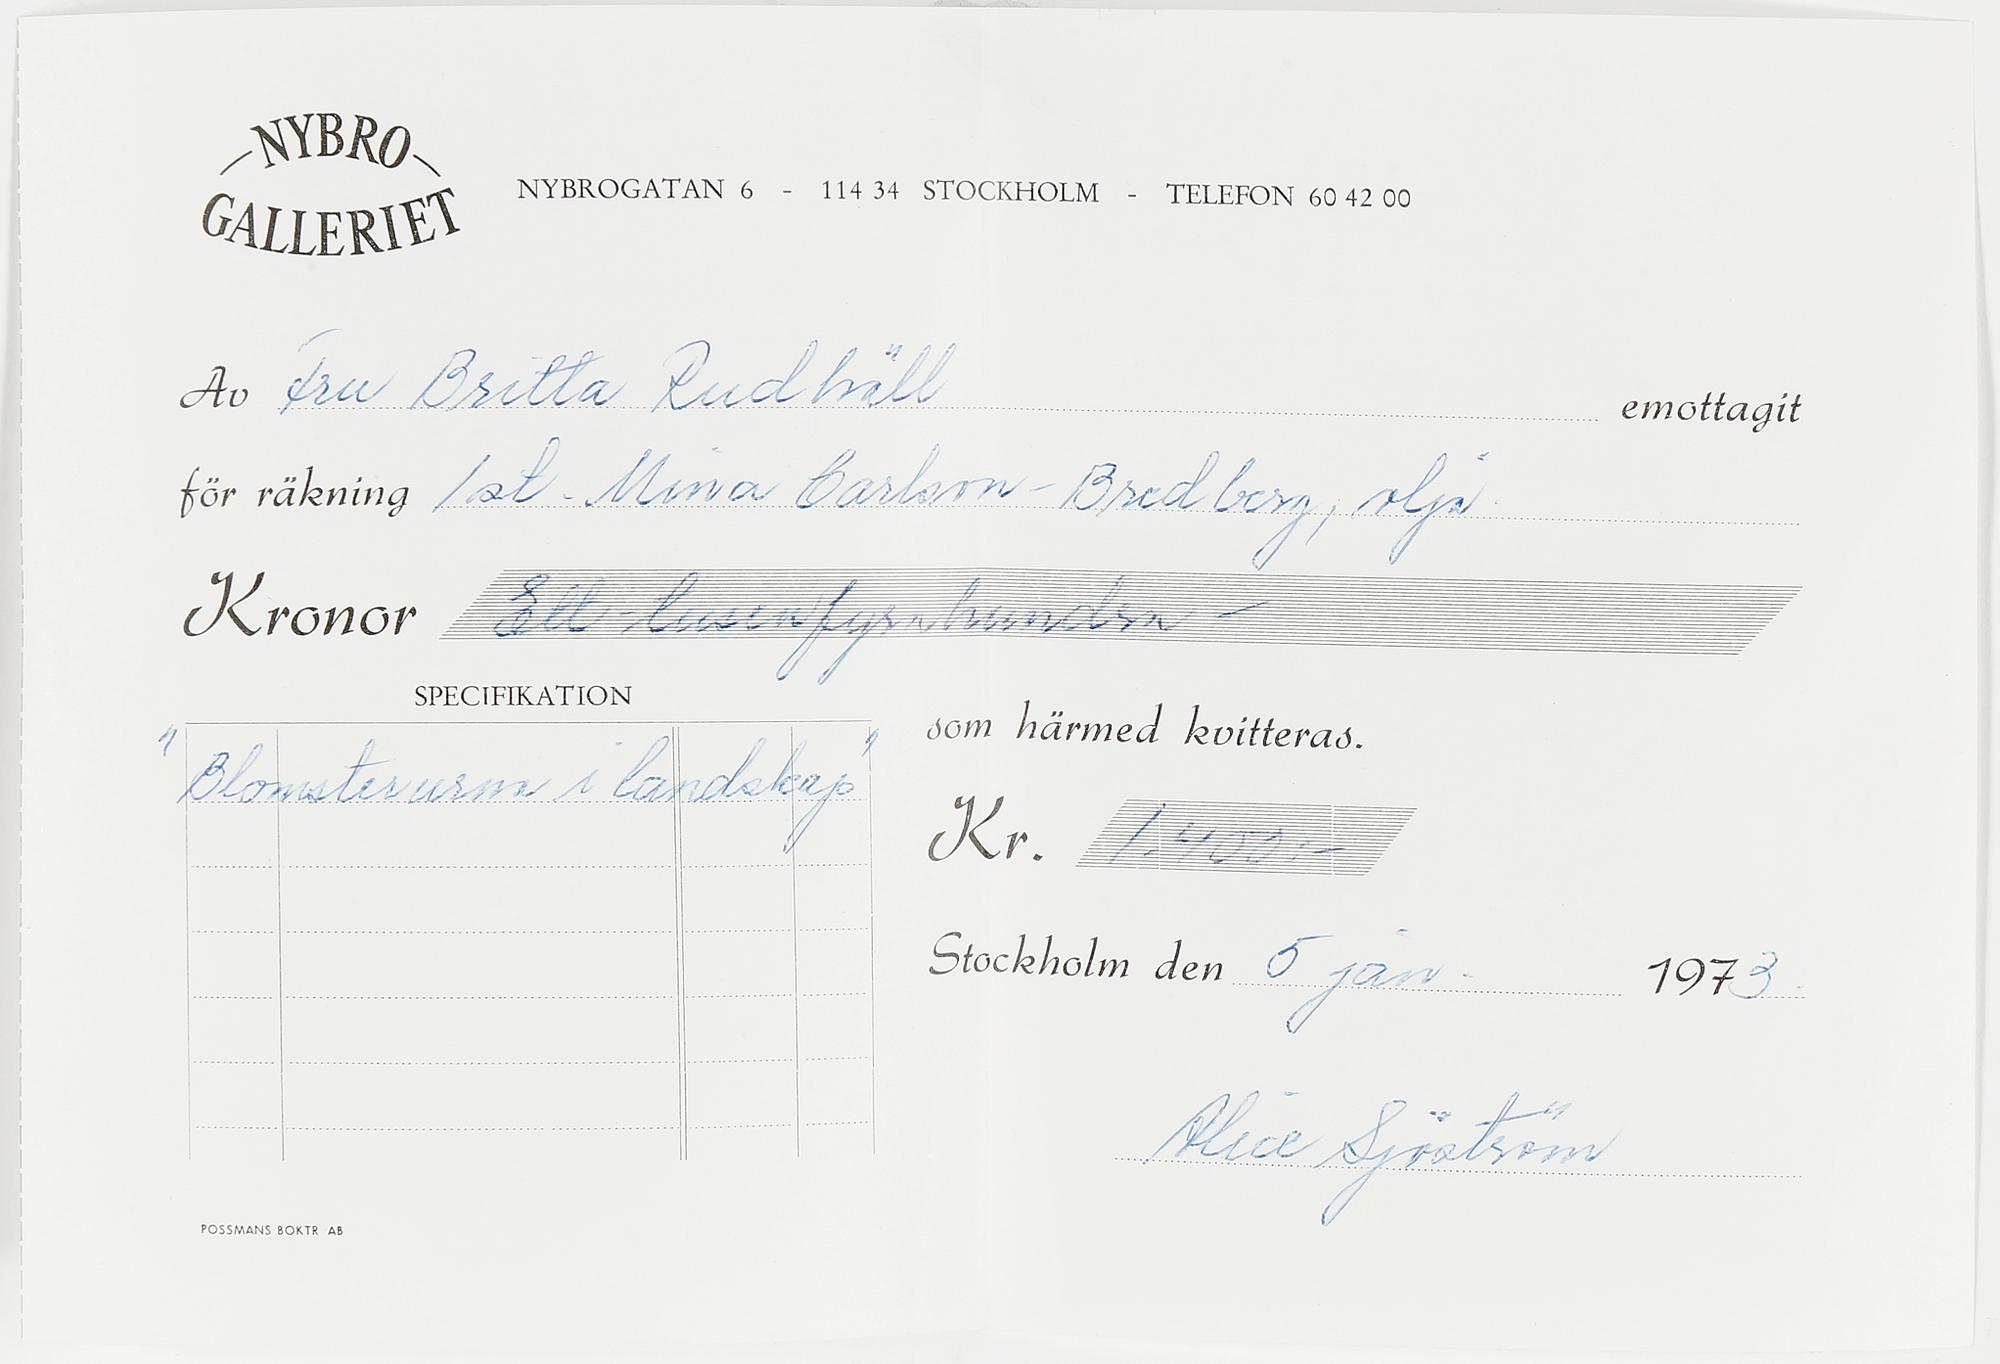 NYBRO
GALLERIET
NYBROGATAN 6 - 114 34 STOCKHOLM - TELEFON 60 42 00
Av Fru Britta Rudhäll emottagit
för räkning 1 st. Mina Carlson-Bredberg, olja
Kronor Ett-tusenfyrahundra -
SPECIFIKATION
"Blomsterurna i landskap"
som härmed kvitteras.
Kr. 1.400:-
Stockholm den 5 jan. 1973.
Alice Sjöström
POSSMANS BOKTR AB